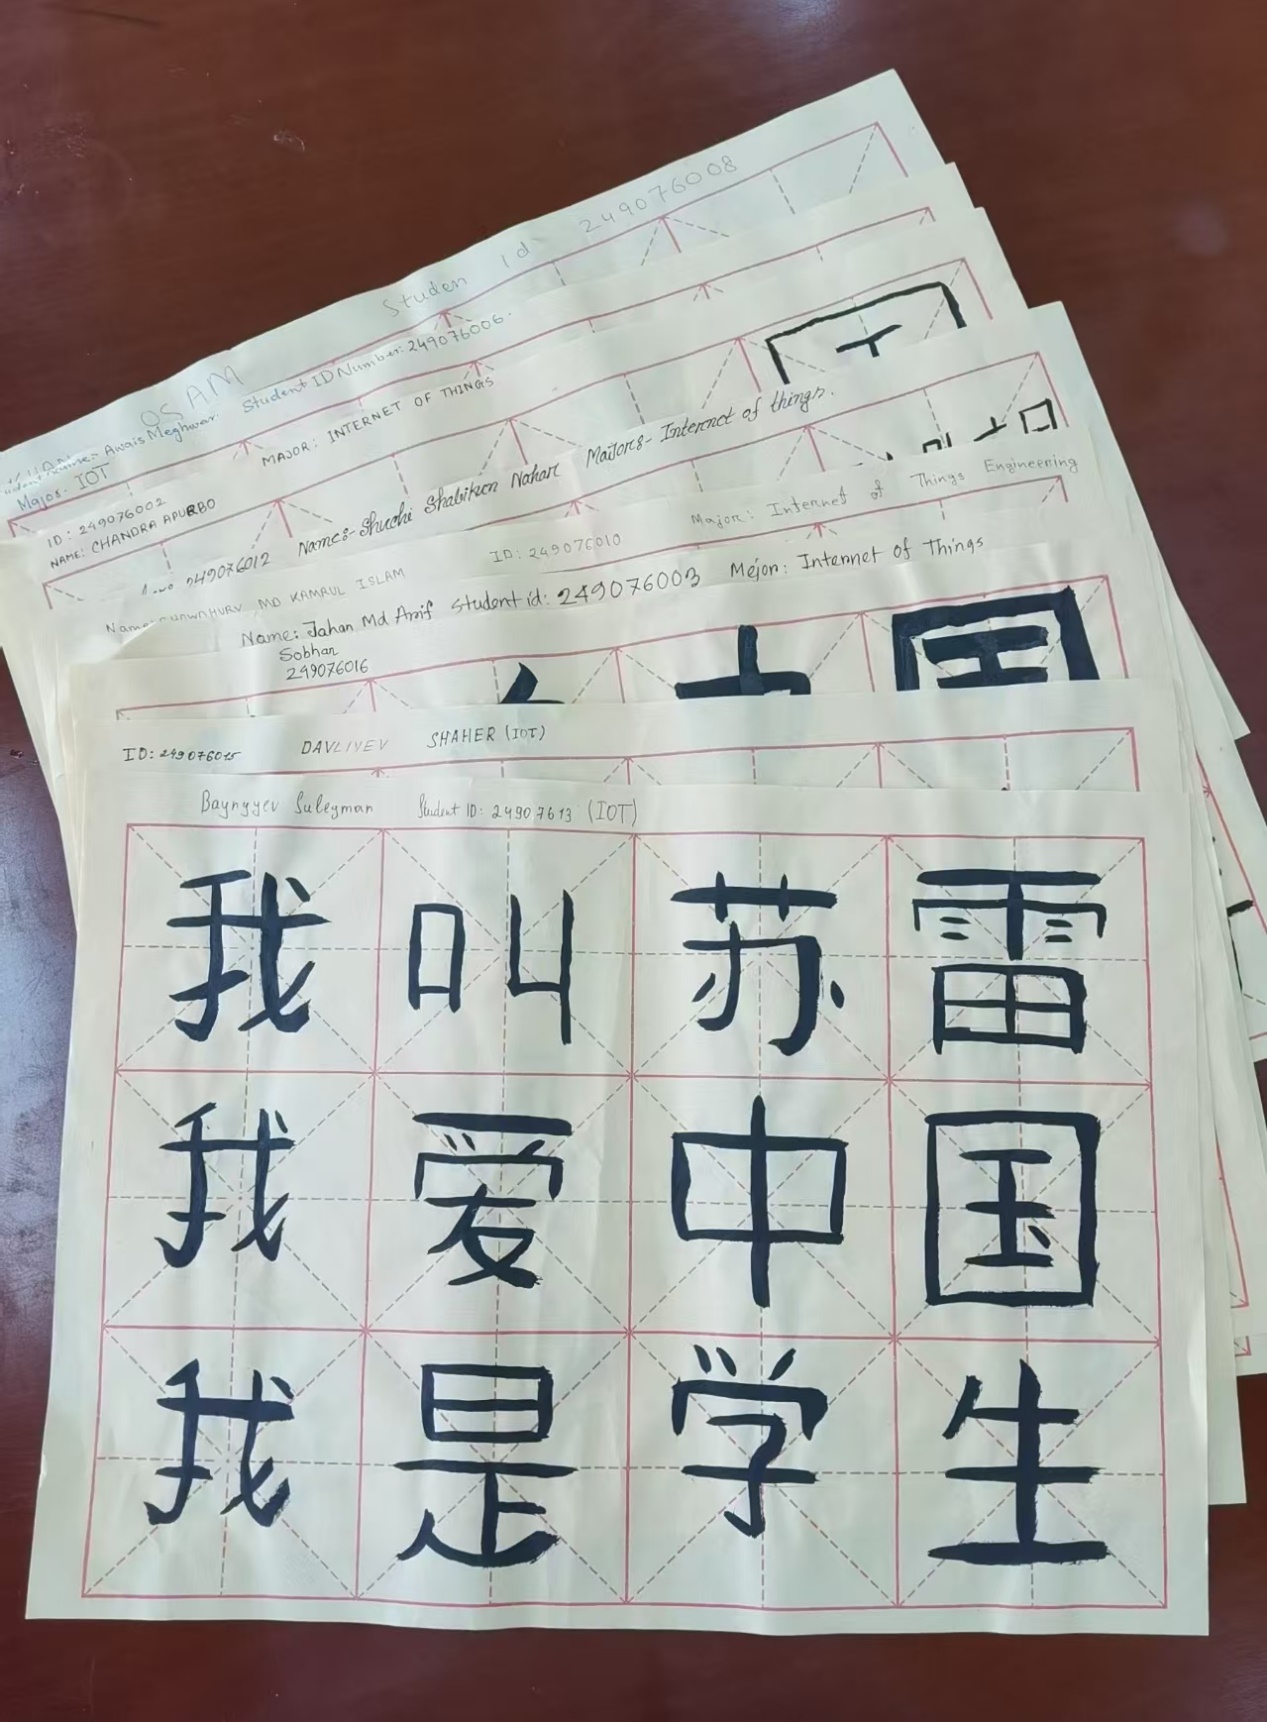 Studen Id 249076008
OSAM
Awais Meghwar Student ID Number: 249076006.
Major- IOT
MAJOR: INTERNET OF THINGS
ID: 249076002
NAME: CHANDRA APURBO
249076012 Name:- Shuchi Shabikun Nahar Majors- Internet of things.
ID: 249076010 Major: Internet of Things Engineering
MD KAMRUL ISLAM
Name: Jahan Md Arif Student id: 249076003 Mejor: Internet of Things
Sobhan
249076016
中国
ID: 249076015 DAVLIYEV SHAHER (IOT)
Baynyyev Suleyman Student ID: 24907613 (IOT)
我叫苏雷
我爱中国
我是学生